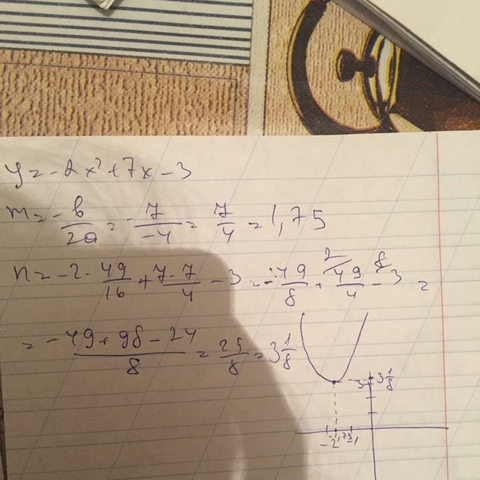 y = -2x² + 7x - 3
m = -b/2a = -7/-4 = 7/4 = 1,75
n = -2 · 49/16 + 7·7/4 - 3 = -49/8 + 49/4 - 3 =
2 8
= -49+98-24/8 = 25/8 = 3 1/8
3 3 1/8
-2 -1